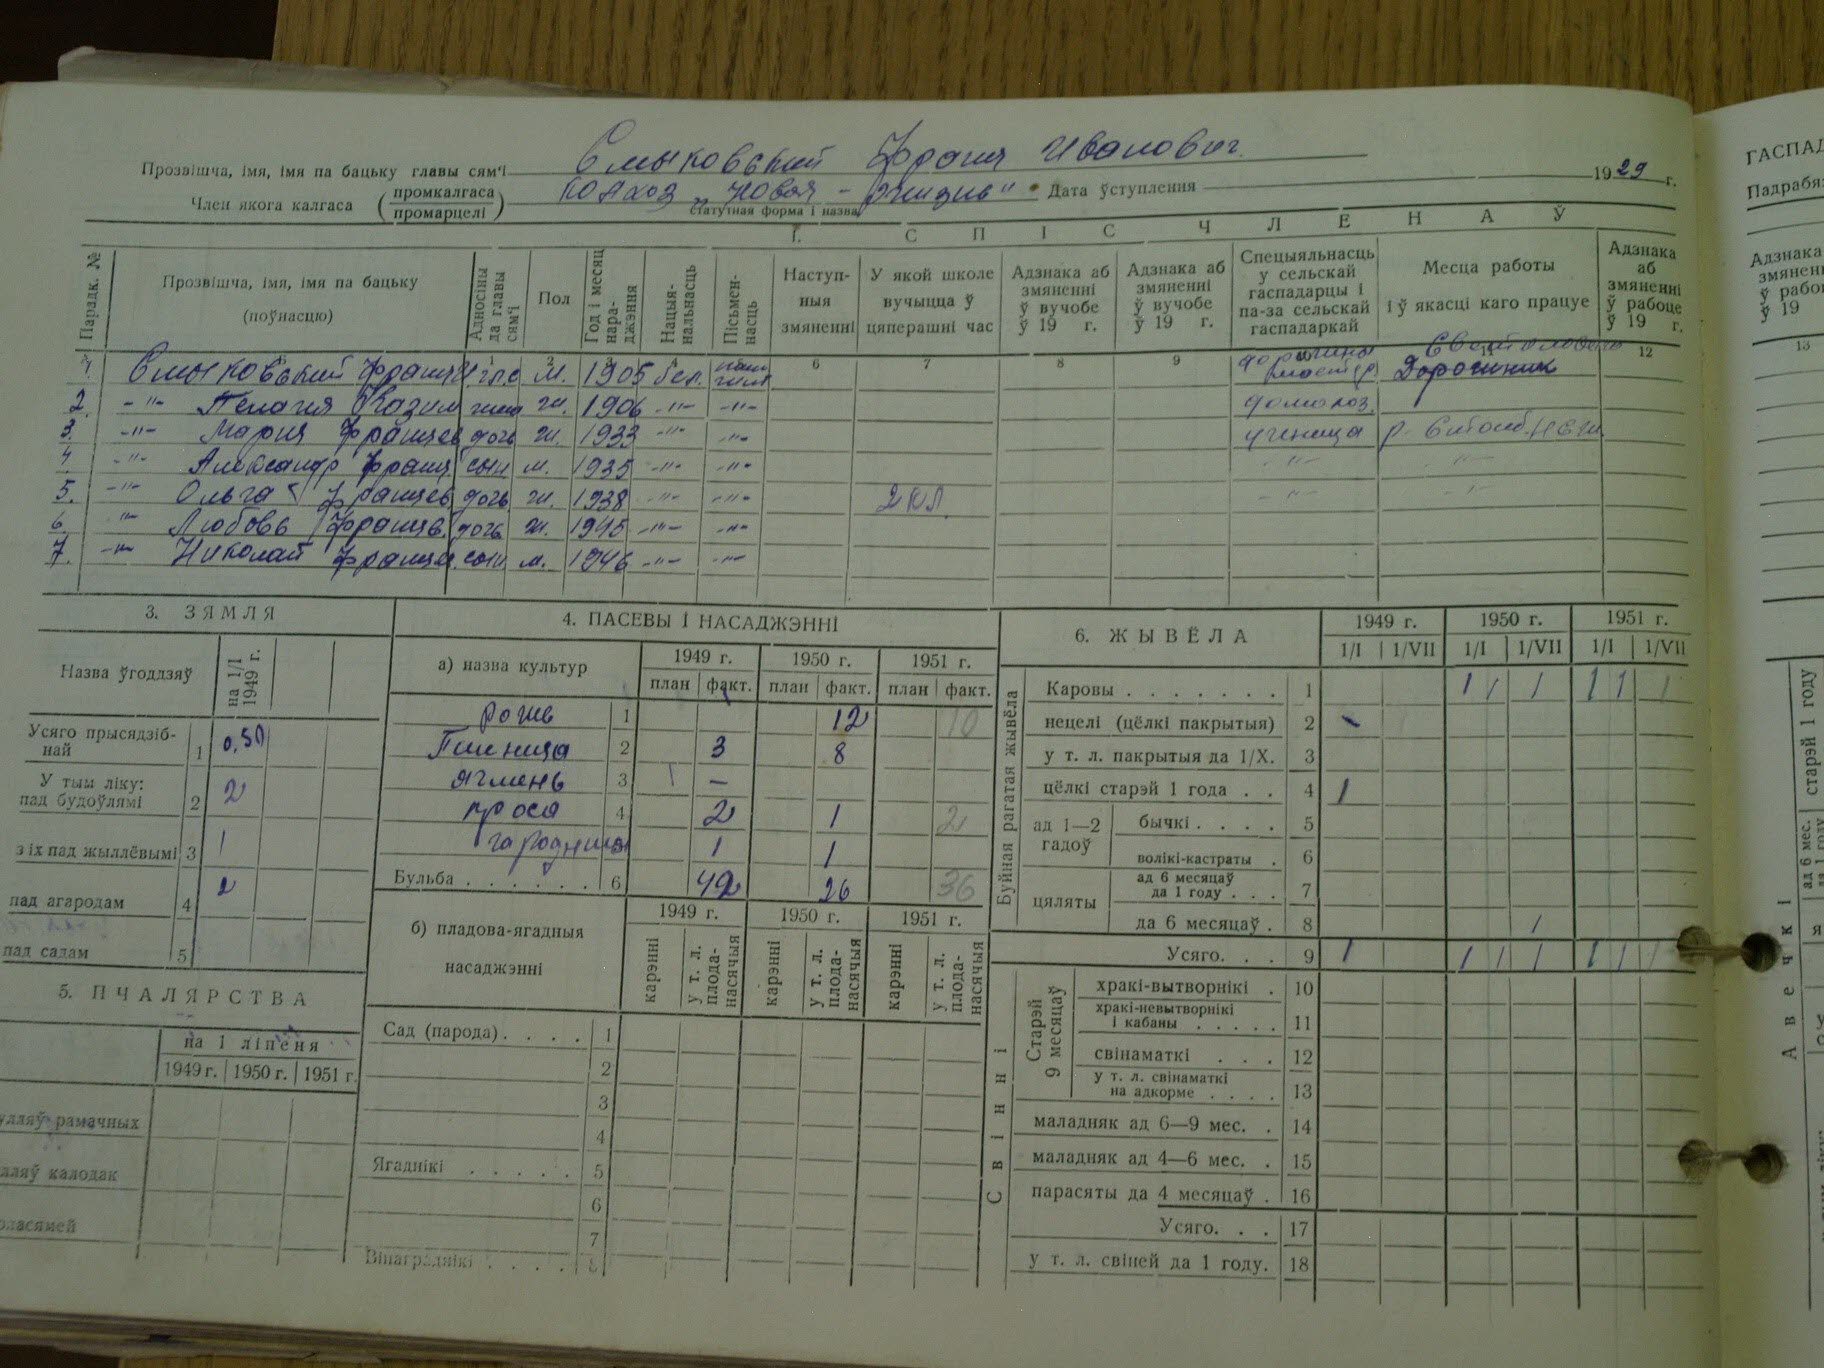 Прозвішча, імя, імя па бацьку главы сям'і Смыковский Франц Иванович.
Член якога калгаса (промкалгаса промарцелі) колхоз „Новая - Дата ўступлення 1929 г.
статутная форма і назва
I. СПІС ЧЛЕНАЎ
Парадк. № Прозвішча, імя, імя па бацьку (поўнасцю) Адносіны да главы сям'і Пол Год і месяц нараджэння Нацыянальнасць Пісьменнасць Наступныя змяненні У якой школе вучыцца ў цяперашні час Адзнака аб змяненні ў вучобе ў 19 г. Адзнака аб змяненні ў вучобе ў 19 г. Спецыяльнасць у сельскай гаспадарцы і па-за сельскай гаспадаркай Месца работы і ў якасці каго працуе Адзнака аб змяненні ў рабоце ў 19 г.
1 2 3 4 6 7 8 9 11 12
1. Смыковский Франц И г.с. м. 1905 бел.
2. -"- Пелагия Казим жена ж. 1906 -"- -"- домохоз.
3. -"- Мария Францев дочь ж. 1933 -"- -"- ученица
4 -"- Александр Франц. сын м. 1935 -"- -"- -"- -"-
5. -"- Ольга Францев дочь ж. 1938 -"- -"- 2 кл. -"- -"-
6. -"- Любовь Францев. дочь ж. 1945 -"- -"-
7. -"- Николай Францев. сын м. 1946 -"- -"-
3. ЗЯМЛЯ
Назва ўгоддзяў на 1/I 1949 г.
Усяго прысядзібнай 1 0,50
У тым ліку:
пад будоўлямі 2 2
з іх пад жыллёвымі 3 1
пад агародам 4 2
пад садам 5
5. ПЧАЛЯРСТВА
на 1 ліпеня
1949 г. 1950 г. 1951 г.
рамачных
калодак
4. ПАСЕВЫ І НАСАДЖЭННІ
а) назва культур 1949 г. 1950 г. 1951 г.
план факт. план факт. план факт.
рожь 1 12 10
Пшеница 2 3 8
ячмень 3 –
проса 4 2 1 2
1 1
Бульба 6 42 26 36
б) пладова-ягадныя насаджэнні 1949 г. 1950 г. 1951 г.
карэнні у т. л. плоданасячыя карэнні у т. л. плоданасячыя карэнні у т. л. плоданасячыя
Сад (парода) 1
2
3
4
Ягаднікі 5
6
7
Вінаграднікі 8
6. ЖЫВЁЛА 1949 г. 1950 г. 1951 г.
1/I 1/VII 1/I 1/VII 1/I 1/VII
Буйная рагатая жывёла
Каровы 1 1 1 1 1 1 1
нецелі (цёлкі пакрытыя) 2
у т. л. пакрытыя да 1/X. 3
цёлкі старэй 1 года 4 1
ад 1—2 гадоў бычкі 5
волікі-кастраты 6
цяляты ад 6 месяцаў да 1 году 7
да 6 месяцаў 8 1
Усяго 9 1 1 1 1 1 1 1
Свінні
Старэй 9 месяцаў хракі-вытворнікі 10
хракі-невытворнікі і кабаны 11
свінаматкі 12
у т. л. свінаматкі на адкорме 13
маладняк ад 6—9 мес. 14
маладняк ад 4—6 мес. 15
парасяты да 4 месяцаў 16
Усяго 17
у т. л. свіней да 1 году. 18
13
Авечкі
старэй 1 году
ад 6 мес.